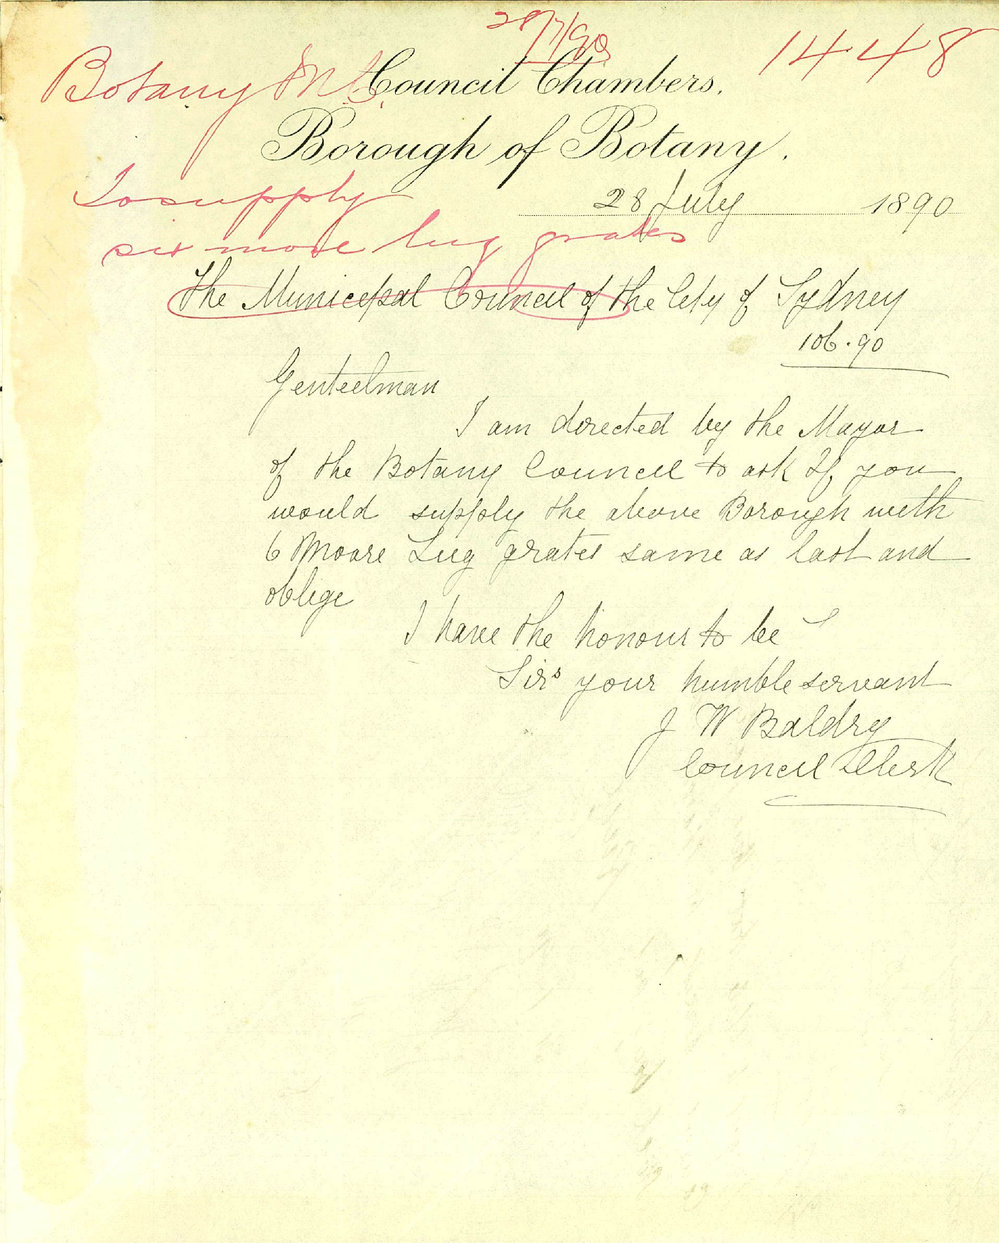 28/7/90
1448
Botany M.C.
Council Chambers.
Borough of Botany.
To supply
28 July 1890
six more lug grates
The Municipal Council of the City of Sydney
106.90
Genteelman
I am directed by the Mayor
of the Botany Council to ask If you
would supply the above Borough with
6 Moore Lug grates same as last and
oblige
I have the honour to be
Sirs your humble servant
J W Baldry
Council Clerk